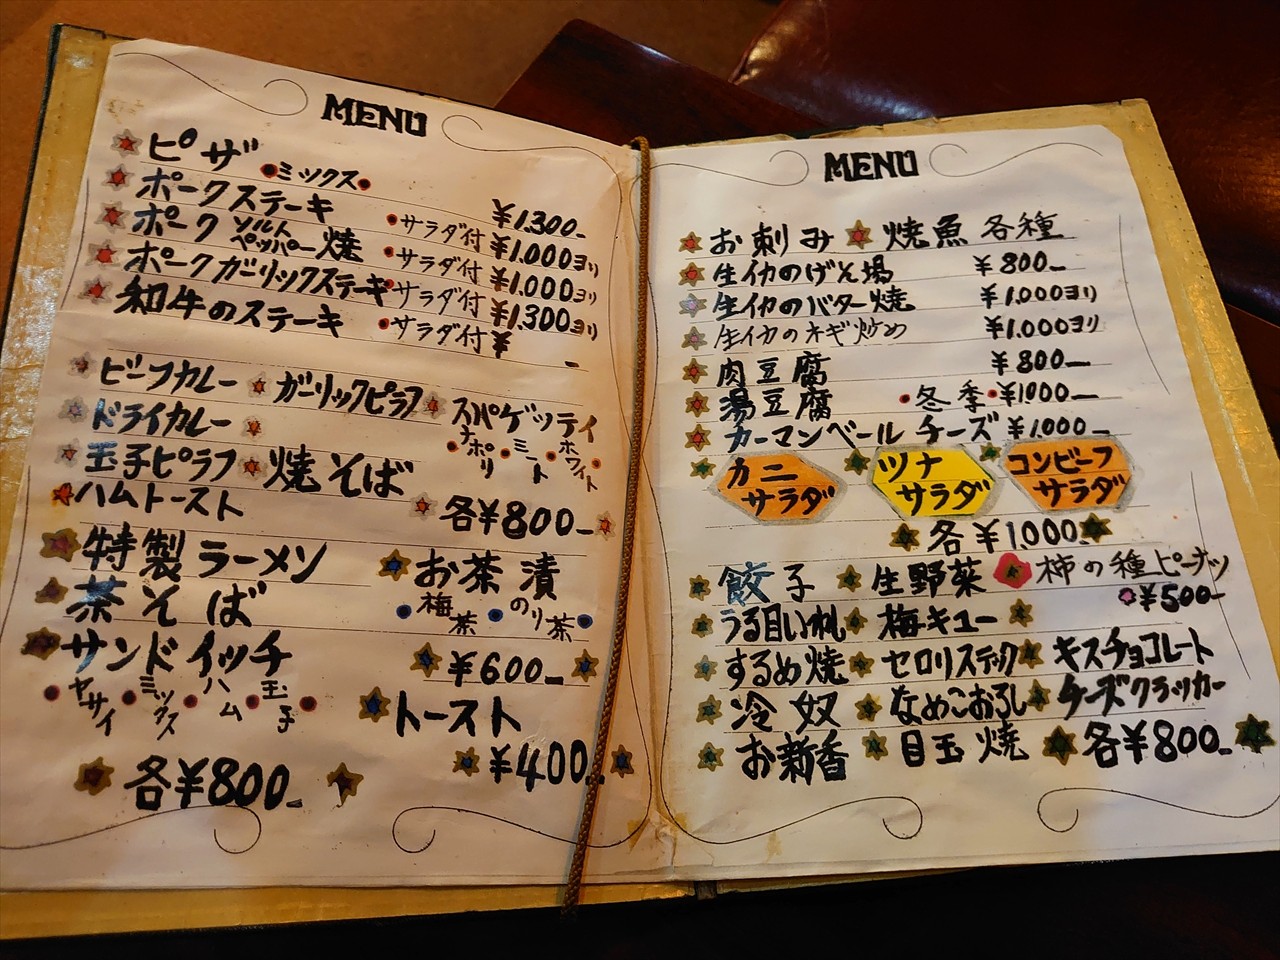 MENU
ピザ ・ミックス・ ¥1.300-
ポークステーキ ・サラダ付 ¥1.000ヨリ
ポーク ソルト ペッパー焼 ・サラダ付 ¥1.000ヨリ
ポークガーリックステーキ ・サラダ付 ¥1.300ヨリ
和牛のステーキ ・サラダ付 ¥ -
ビーフカレー ガーリックピラフ スパゲッティ
ドライカレー ・ナポリ・ミート・ホワイト・
玉子ピラフ 焼そば
ハムトースト 各¥800-
特製ラーメン お茶漬
茶そば 梅茶・のり茶・
サンドイッチ ¥600-
・ヤサイ・ミックス・ハム・玉子・ トースト
¥400-
各¥800-
MENU
お刺み 焼魚 各種
生イカのげそ揚 ¥800-
生イカのバター焼 ¥1.000ヨリ
生イカのネギ炒め ¥1.000ヨリ
肉豆腐 ¥800-
湯豆腐 ・冬季・¥1000-
カーマンベールチーズ ¥1.000-
カニサラダ ツナサラダ コンビーフサラダ
各¥1.000-
餃子 生野菜 柿の種ピーナッツ
¥500-
うる目いわし 梅キュー
するめ焼 セロリスティック キスチョコレート
冷奴 なめこおろし チーズクラッカー
お新香 目玉焼 各¥800-